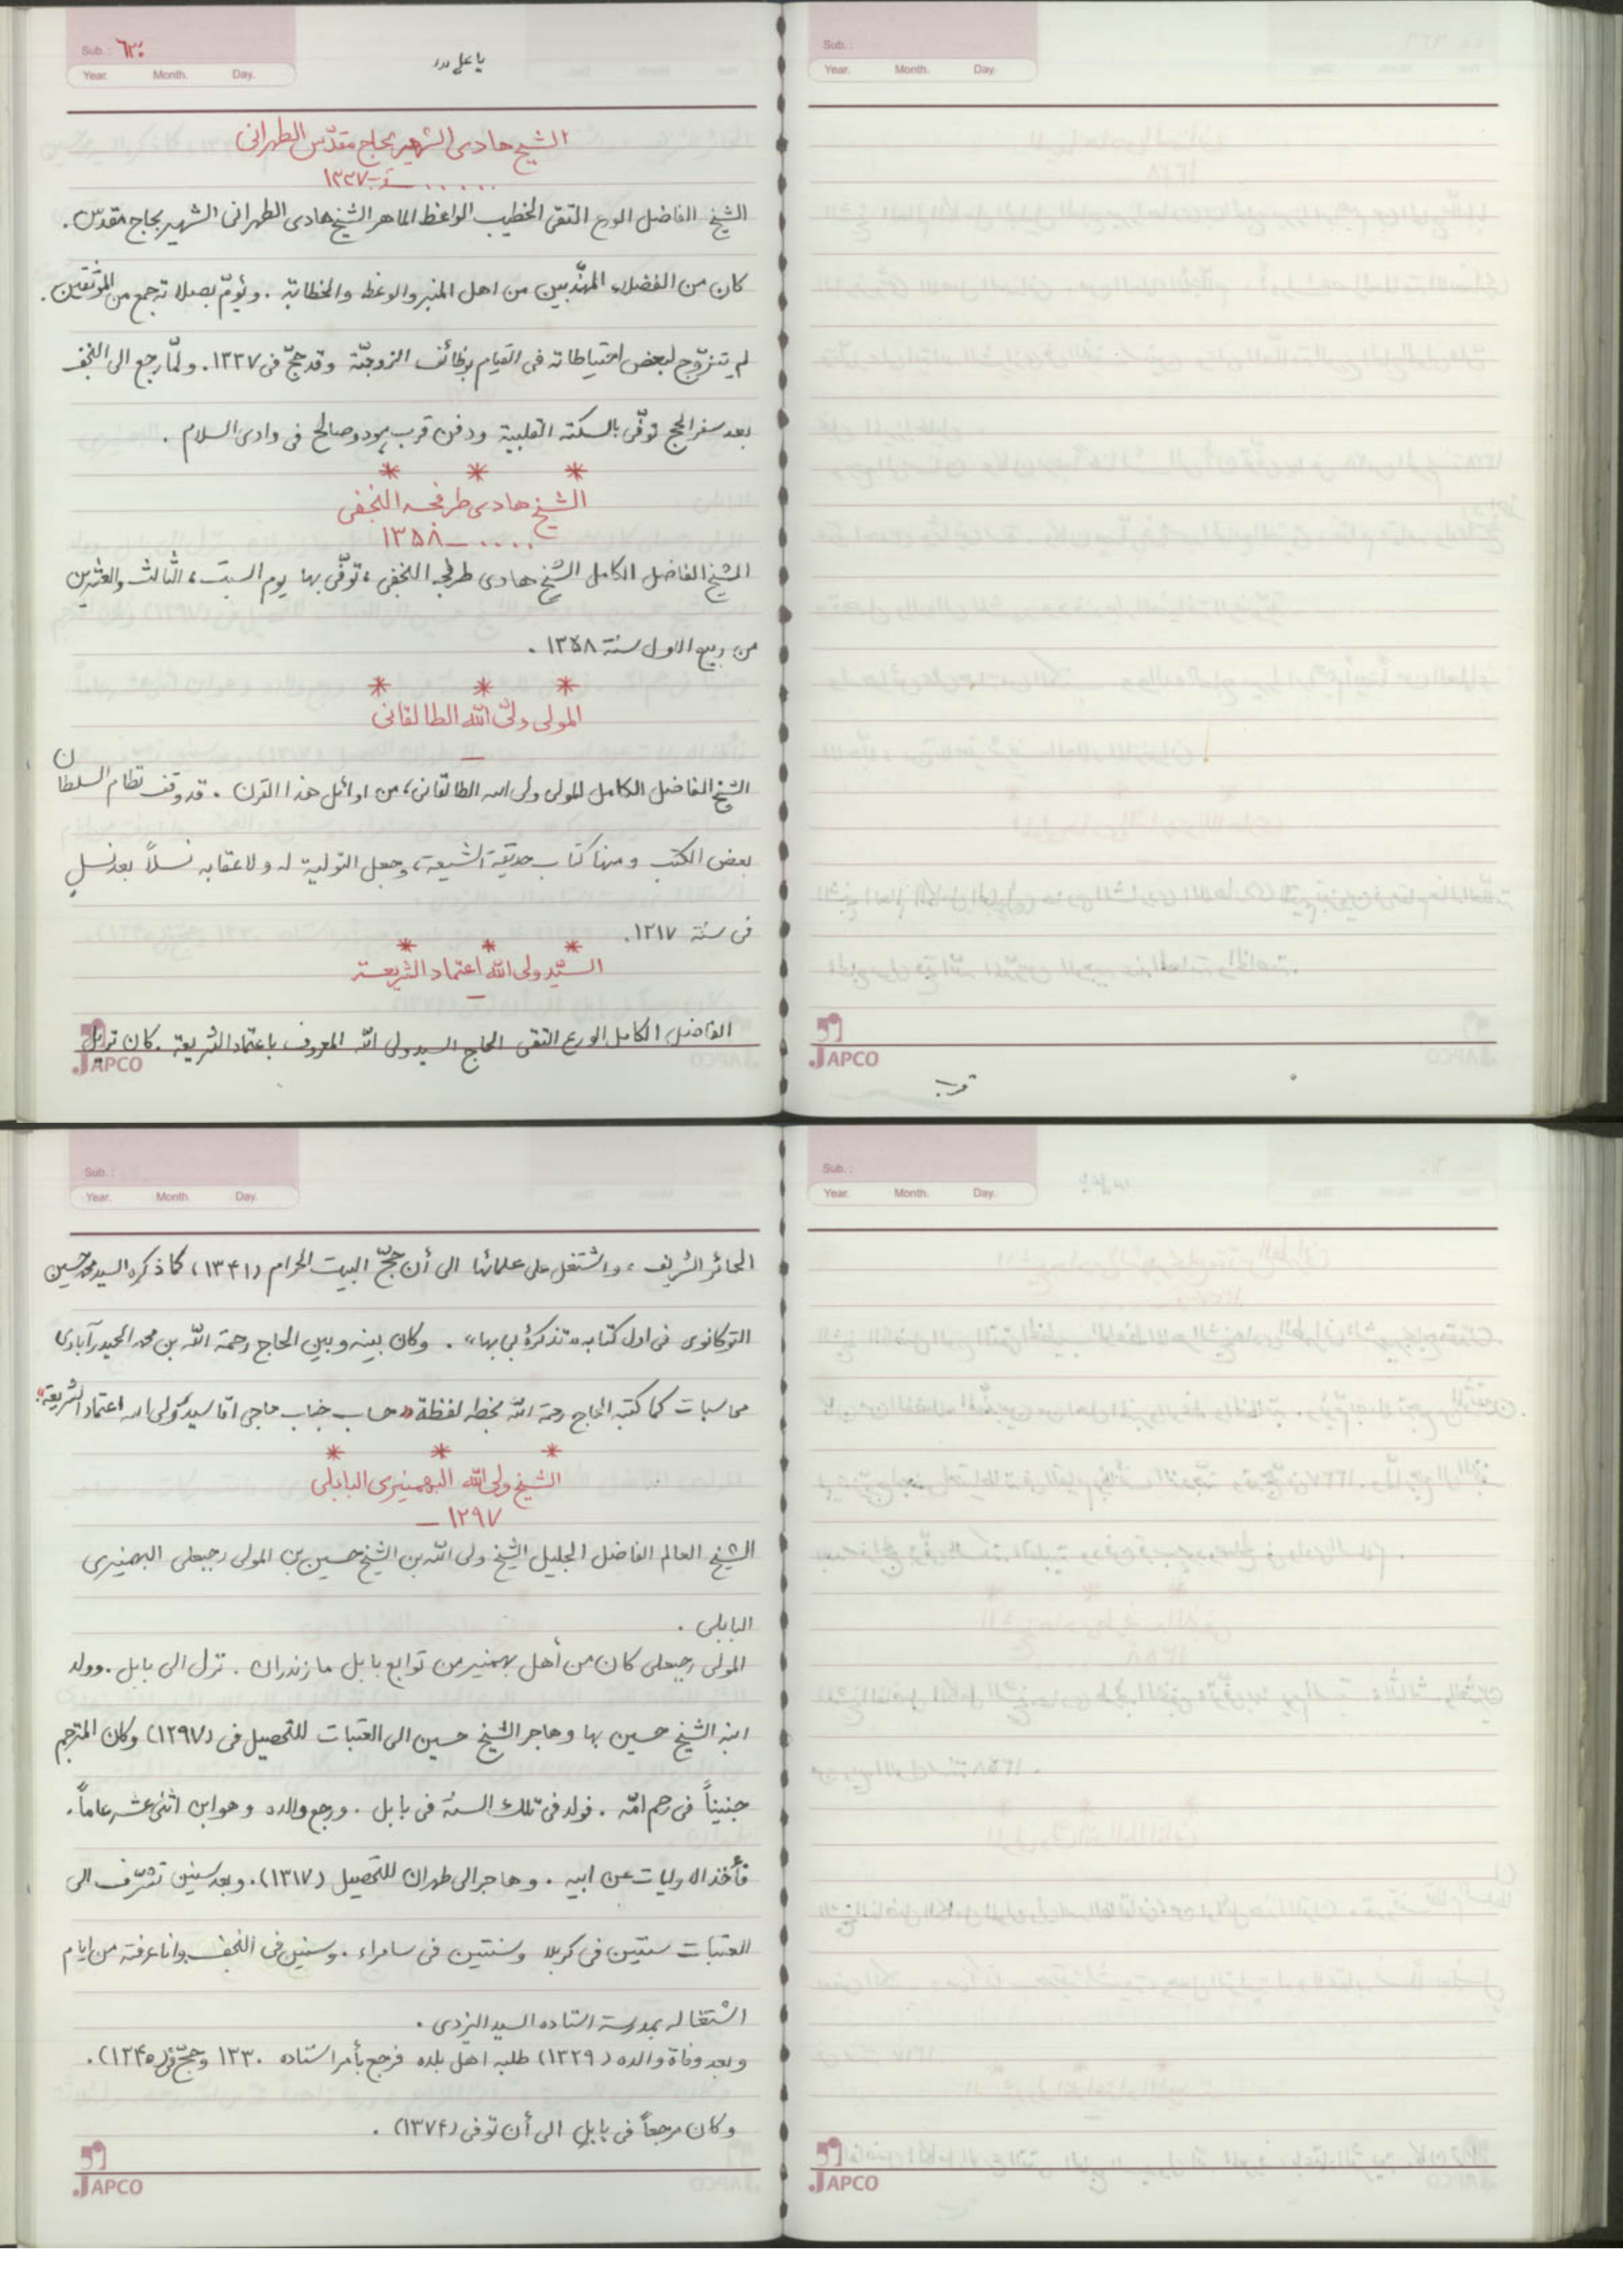 Sub. : ٦٣٠
Year. Month. Day.
يا علي مدد
الشيخ هادى الشهير بحاج مقدّس الطهرانى
..... ـ ١٣٣٧
الشيخ الفاضل الورع التقى الخطيب الواعظ الماهر الشيخ هادى الطهرانى الشهير بحاج مقدّس.
كان من الفضلاء المهذّبين من اهل المنبر والوعظ والخطابة . ويؤمّ بصلاته جمع من الموثّقين.
لم يتزوّج لبعض احتياطاته فى القيام بوظائف الزوجيّة وقد حجّ فى ١٣٣٧. ولمّا رجع الى النجف
بعد سفر الحج توفّى بالسكتة القلبية ودفن قرب هود وصالح فى وادى السلام .
* * *
الشيخ هادى طرفحه النجفى
.... ـ ١٣٥٨
الشيخ الفاضل الكامل الشيخ هادى النجفى، توفّى بها يوم السبت، الثالث والعشرين
من ربيع الاول سنة ١٣٥٨ .
* * *
المولى ولىّ الله الطالقانى
ـ
الشيخ الفاضل الكامل المولى ولى الله الطالقانى، من اوائل هذا القرن . قد وقف نظام السلطان
بعض الكتب ومنها كتاب حديقة الشيعة، وجعل التولية له ولاعقابه نسلاً بعد نسلٍ
فى سنة ١٣١٧.
* * *
السيّد ولى الله اعتماد الشريعة
ـ
الفاضل الكامل الورع التقى الحاج السيد ولى الله المعروف باعتماد الشريعة . كان نزيل
JAPCO
Sub. :
Year. Month. Day.
JAPCO
Sub. :
Year. Month. Day.
الحائر الشريف ، واشتغل على علمائها الى أن حجّ البيت الحرام (١٣٤١) كما ذكره السيد محمد حسين
التوكانوى فى اول كتابه «تذكرهٔ بى بها» . وكان بينه وبين الحاج رحمة الله بن محمد الحيدرآبادى
محاسبات كما كتبه الحاج رحمة الله بخطه لفظة «حساب جناب حاجى اقا سيد ولى الله اعتماد الشريعة»
* * *
الشيخ ولى الله البهمنيرى البابلى
١٢٩٧ ـ
الشيخ العالم الفاضل الجليل الشيخ ولى الله بن الشيخ حسين بن المولى رجبعلى البهمنيرى
البابلى .
المولى رجبعلى كان من أهل بهمنير من توابع بابل مازندران . نزل الى بابل . وولد
ابنه الشيخ حسين بها وهاجر الشيخ حسين الى العتبات للتحصيل فى (١٢٩٧) وكان المترجم
جنيناً فى رحم امّه . فولد فى تلك السنة فى بابل . ورجع والده وهو ابن اثنى عشر عاماً.
فأخذ الاوليات عن ابيه . وهاجر الى طهران للتحصيل (١٣١٧). وبعد سنين تشرّف الى
العتبات سنتين فى كربلا وسنتين فى سامراء . وسنين فى النجف وانا عرفته من ايام
اشتغاله بمدرسة استاده السيد اليزدى .
وبعد وفاة والده (١٣٢٩) طلبه اهل بلده فرجع بأمر استاده ١٣٣٠ وحجّ فى (١٣٤٥).
وكان مرجعاً فى بابل الى أن توفى (١٣٧٤) .
JAPCO
Sub. :
Year. Month. Day.
JAPCO